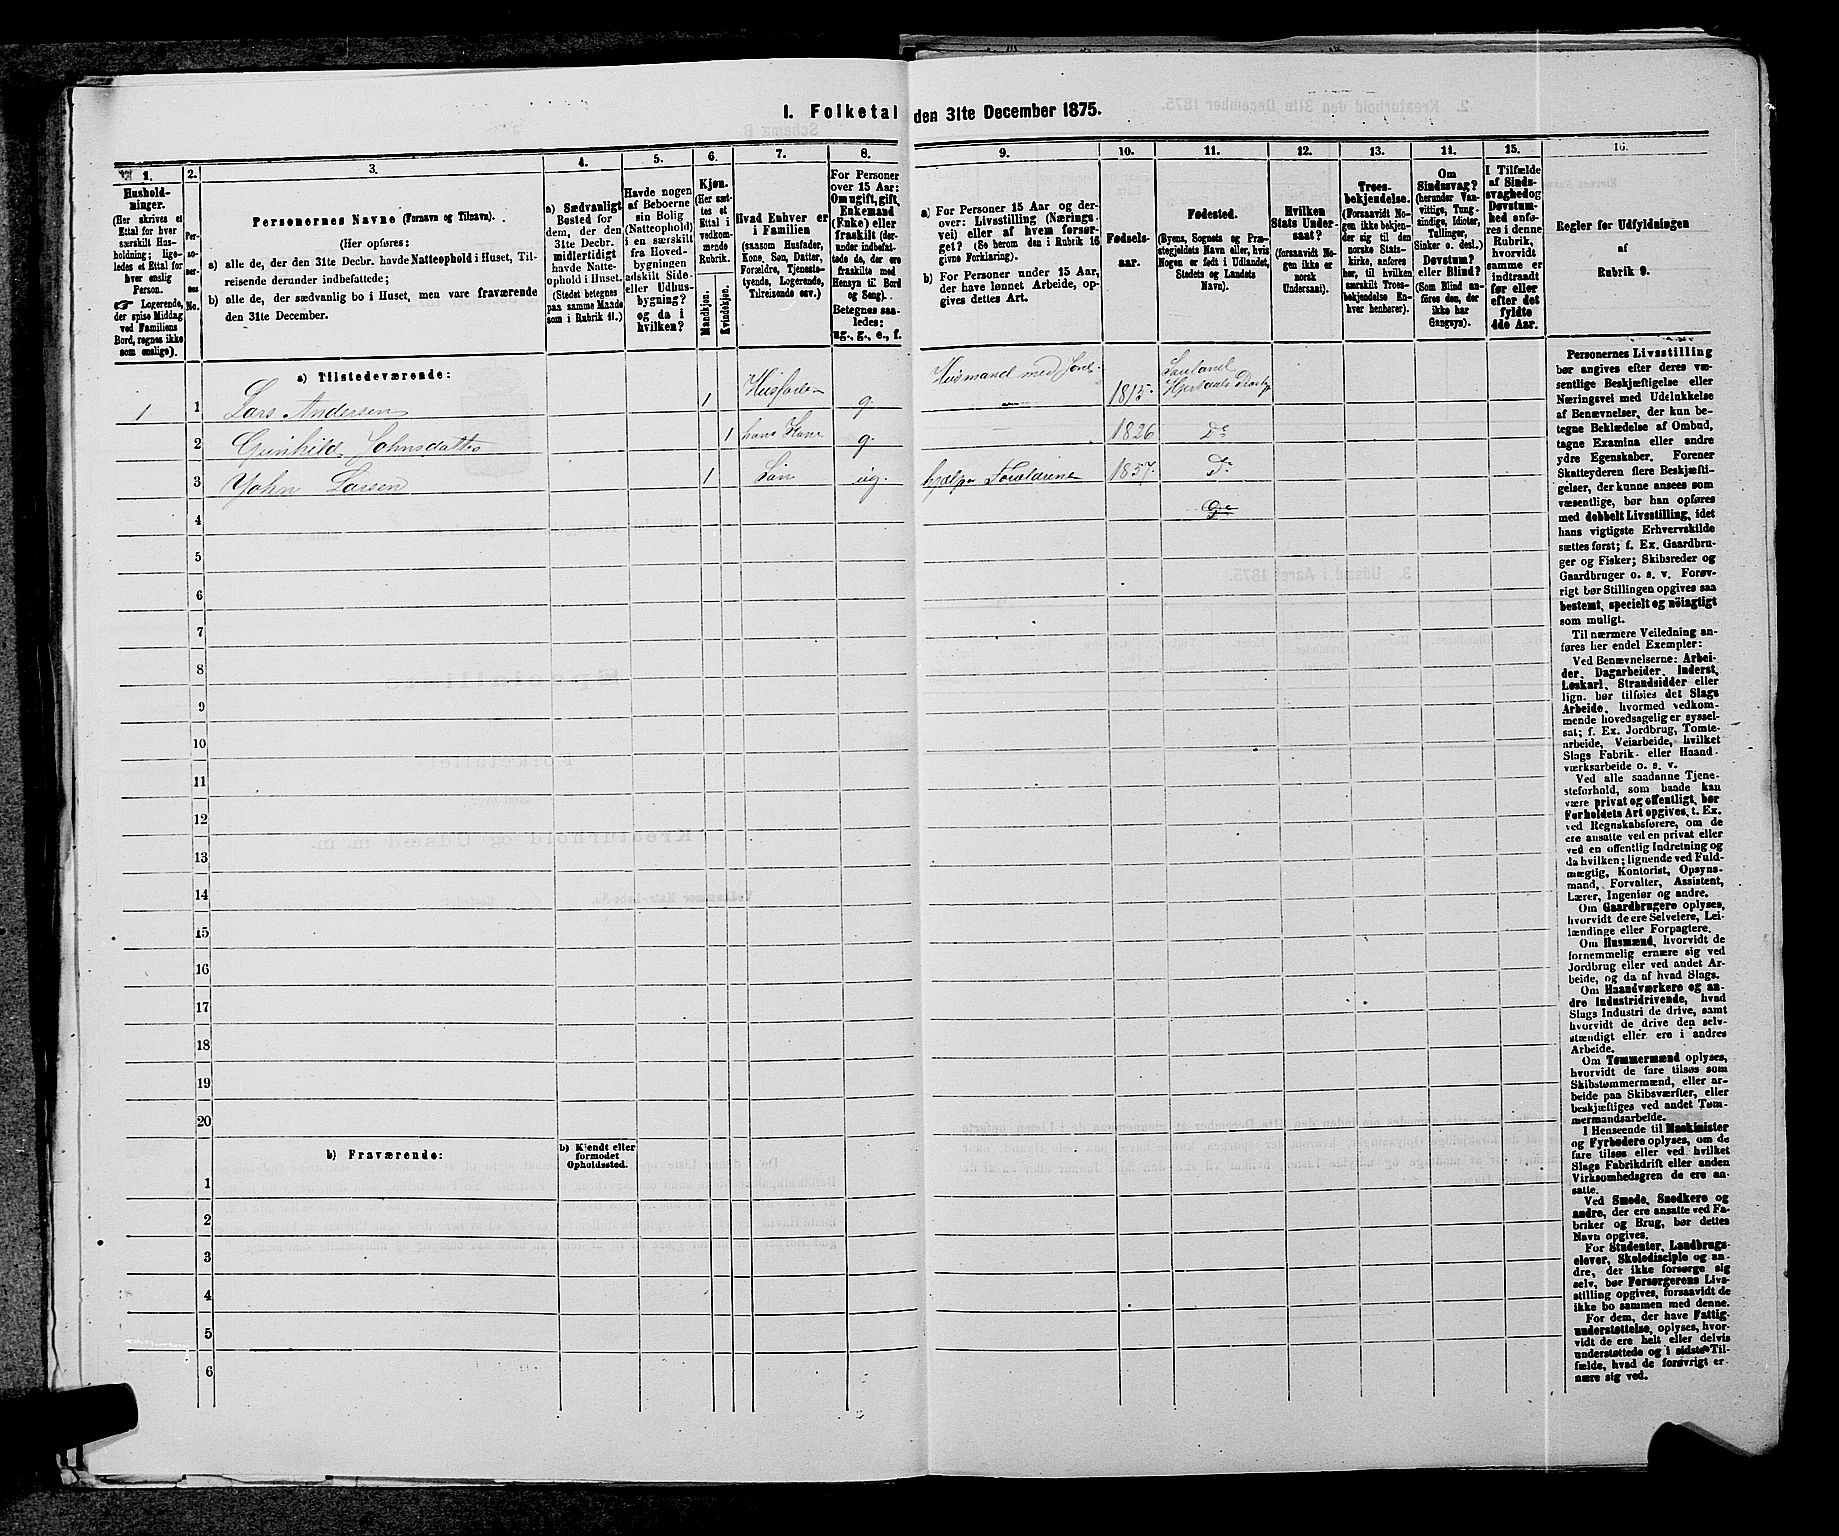 I. Folketal den 31te December 1875.
1.
Hushold-
ninger.
(Her skrives et
Ettal for hver
særskilt Hus-
holdning; lige-
ledes et Ettal for
hver enslig
Person.
☞ Logerende,
der spise Middag
ved Familiens
Bord, regnes ikke
som enslige).
2.
Per-
so-
ner-
nes
No.
3.
Personernes Navne (Fornavn og Tilnavn).
(Her opføres:
a) alle de, der den 31te Decbr. havde Natteophold i Huset, Til-
reisende derunder indbefattede;
b) alle de, der sædvanlig bo i Huset, men vare fraværende
den 31te December.
4.
a) Sædvanligt
Bosted for
dem, der den
31te Decbr.
midlertidigt
havde Natte-
ophold i Huset.
(Stedet betegnes
paa samme Maade
som i Rubrik 11.)
5.
Havde nogen
af Beboerne
sin Bolig
(Natteophold)
i en særskilt
fra Hoved-
bygningen
adskilt Side-
eller Udhus-
bygning?
og da i
hvilken?
6.
Kjøn.
(Her sæt-
tes et
Ettal i
vedkom-
mende
Rubrik.
Mandkjøn.
Kvindekjøn.
7.
Hvad Enhver er
i Familien
(saasom Husfader,
Kone, Søn, Datter,
Forældre, Tjeneste-
tyende, Logerende,
Tilreisende osv.)
8.
For Personer
over 15 Aar:
Om ugift, gift,
Enkemand
(Enke) eller
fraskilt (der-
under indbefat-
tede de, der ere
fraskilte med
Hensyn til Bord
og Seng).
Betegnes saa-
ledes:
ug., g., e., f.
9.
a) For Personer 15 Aar og der-
over: Livsstilling (Nærings-
vei) eller af hvem forsør-
get? (Se herom den i Rubrik 16
givne Forklaring).
b) For Personer under 15 Aar,
der have lønnet Arbeide, op-
gives dettes Art.
10.
Fødsels-
aar.
11.
Fødested.
(Byens, Sognets og Præ-
stegjeldets Navn eller, hvis
Nogen er født i Udlandet,
Stedets og Landets
Navn).
12.
Hvilken
Stats Under-
saat?
(forsaavidt No-
gen ikke er
norsk
Undersaat).
13.
Troes-
bekjendelse.
(Forsaavidt No-
gen ikke bekjen-
der sig til den
norske Stats-
kirke, anføres
her, til hvilken
særskilt Troes-
bekjendelse En-
hver henhører).
14.
Om
Sindssvag?
(herunder Van-
vittige, Tung-
sindige, Idioter,
Tullinger,
Sinker o. desl.)
Døvstum?
eller Blind?
(Som Blind an-
føres den, der
ikke har
Gangsyn).
15.
I Tilfælde
af Sinds-
svaghed og
Døvstum-
hed anfø-
res i denne
Rubrik,
hvorvidt
samme er
indtraadt
før eller
efter det
fyldte
4de Aar.
16.
Regler for Udfyldningen
af
Rubrik 9.
a) Tilstedeværende:
1 1 Lars Andersen 1 Husfader g. Husmand med Jord. 1815. Sauland Hjertdals Præstg.
2 Gunhild Johnsdatter 1 hans Kone g. — 1826 Do
3 John Larsen 1 Søn ug. hjælper Forældrene 1857. Do
4 Do
5
6
7
8
9
10
11
12
13
14
15
16
17
18
19
20
b) Fraværende:
b) Kjendt eller
formodet
Opholdssted.
1
2
3
4
5
6
Personernes Livsstilling
bør angives efter deres væ-
sentlige Beskjæftigelse eller
Næringsvei med Udelukkelse
af Benævnelser, der kun be-
tegne Beklædelse af Ombud,
tagne Examina eller andre
ydre Egenskaber. Forener
Skatteyderen flere Beskjæfti-
gelser, der kunne ansees som
væsentlige, bør han opføres
med dobbelt Livsstilling, idet
hans vigtigste Erhvervskilde
sættes først; f. Ex. Gaardbru-
ger og Fisker; Skibsreder og
Gaardbruger o. s. v. Forøv-
rigt bør Stillingen opgives saa
bestemt, specielt og nöiagtigt
som muligt.
Til nærmere Veiledning an-
føres her endel Exempler:
Ved Benævnelserne: Arbei-
der, Dagarbeider, Inderst,
Løskarl, Strandsidder eller
lign. bør tilføies det Slags
Arbeide, hvormed vedkom-
mende hovedsagelig er syssel-
sat; f. Ex. Jordbrug, Tomte-
arbeide, Veiarbeide, hvilket
Slags Fabrik- eller Haand-
værksarbeide o. s. v.
Ved alle saadanne Tjene-
steforhold, som baade kan
være privat og offentligt, bør
Forholdets Art opgives, t. Ex.
ved Regnskabsførere, om de
ere ansatte ved en privat eller
ved en offentlig Indretning og
da hvilken; lignende ved Fuld-
mægtig, Kontorist, Opsyns-
mand, Forvalter, Assistent,
Lærer, Ingeniør og andre.
Om Gaardbrugere oplyses,
hvorvidt de ere Selveiere, Lei-
lændinge eller Forpagtere.
Om Husmænd, hvorvidt de
fornemmelig ernære sig ved
Jordbrug eller ved andet Ar-
beide, og da af hvad Slags.
Om Haandværkere og an-
dre Industridrivende, hvad
Slags Industri de drive, samt
hvorvidt de drive den selv-
stændigt eller ere i andres
Arbeide.
Om Tømmermænd oplyses,
hvorvidt de fare tilsøs som
Skibstømmermænd, eller ar-
beide paa Skibsværfter, eller
beskjæftiges ved andet Tøm-
mermandsarbeide.
I Henseende til Maskinister
og Fyrbødere oplyses, om de
fare tilsøs eller ved hvilket
Slags Fabrikdrift eller anden
Virksomhedsgren de ere an-
satte.
Ved Smede, Snedkere og
andre, der ere ansatte ved Fa-
briker og Brug, bør dettes
Navn opgives.
For Studenter, Landbrugs-
elever, Skoledisciple og an-
dre, der ikke forsørge sig
selv, bør Forsørgerens Livs-
stilling opgives, forsaavidt de
ikke bo sammen med denne.
For dem, der have Fattig-
understøttelse, oplyses, hvor-
vidt de ere helt eller delvis
understøttede og i sidste Til-
fælde, hvad de forøvrigt er-
nære sig ved.